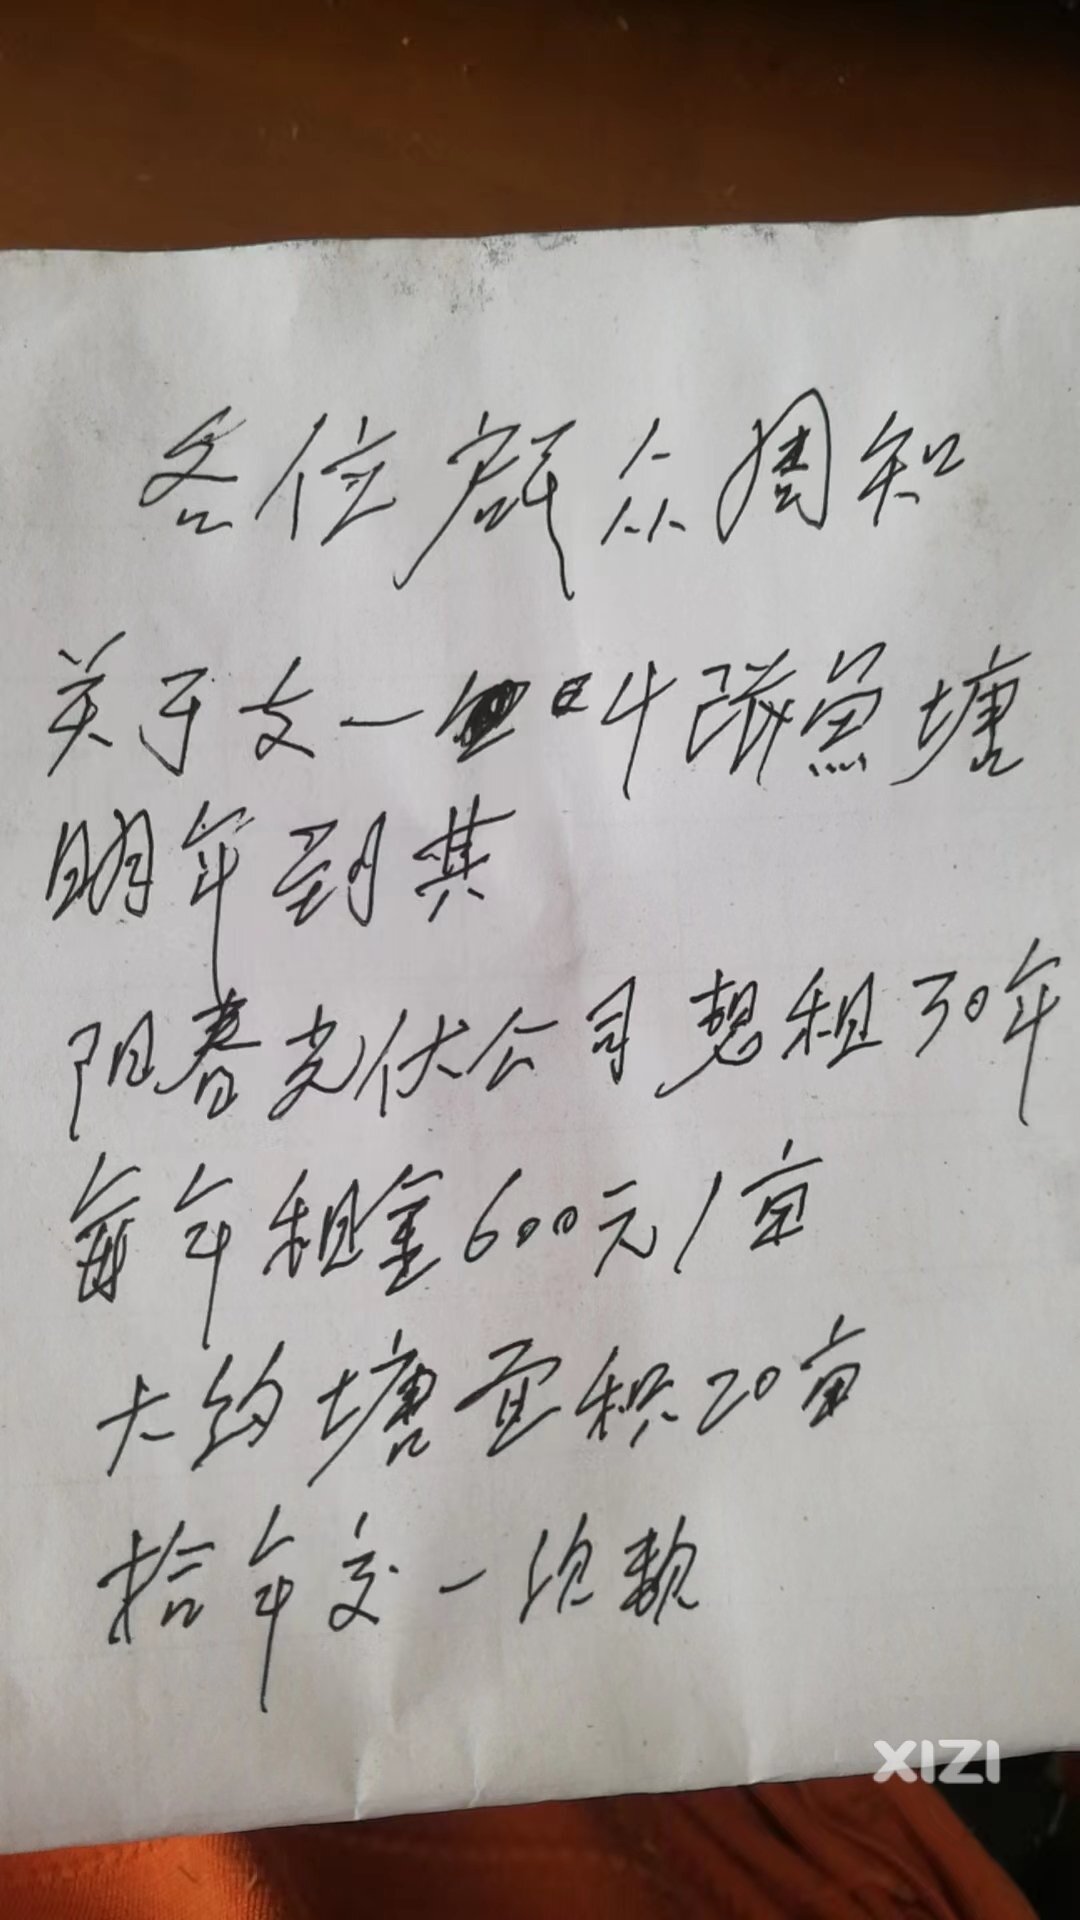 各位群众周知
关于文一 叫队鱼塘
明年到其
阳春光伏公司想租30年
每年租金600元/亩
大约塘面积20亩
拾年交一次款
XIZI